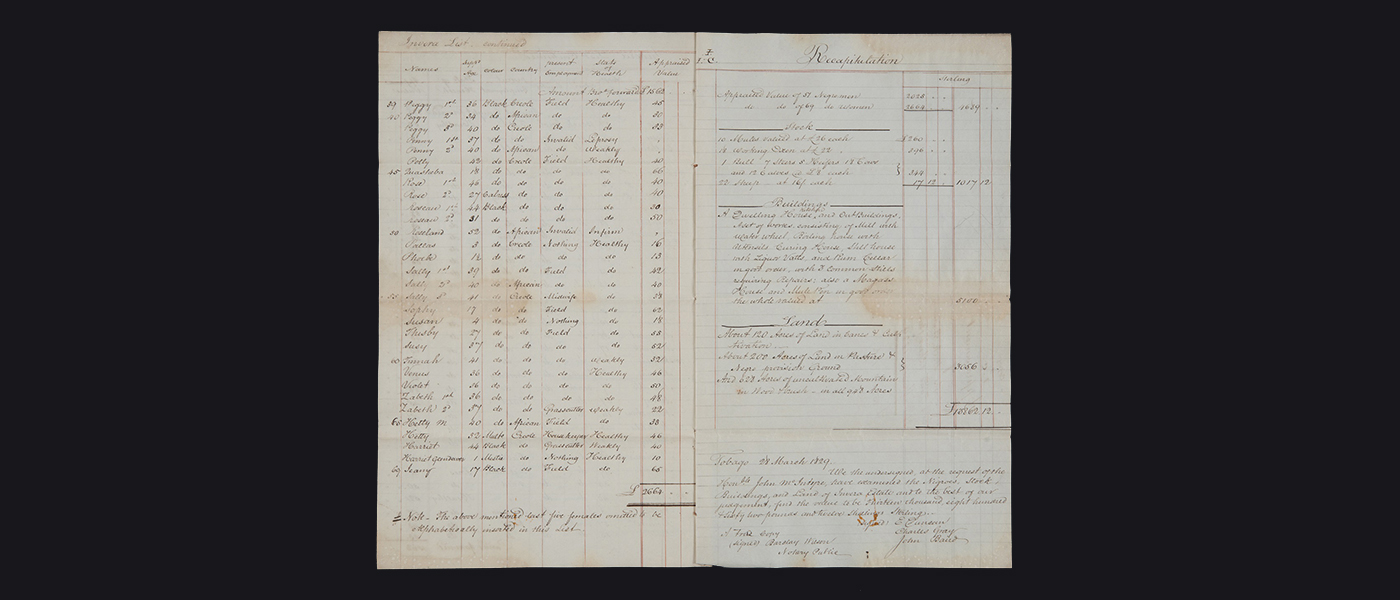 Invoice List continued
Names Supposed Age Colour Country present Employment State of Health Appraised Value
Amount Bro't forward £
39 Peggy 1st 36 Black Creole Field Healthy 45
40 Peggy 2d 34 do African do do 50
Peggy 3d 40 do Creole do do 53
Penny 1st 57 do do Invalid Leprosy
Penny 2d 40 do African do Weakly
Polly 42 do Creole Field Healthy 40
45 18 do do do do 66
Rose 1st 46 do do do do 40
Rose 2d 27 do do do 40
Roseau 1st 44 Black do do do
Roseau 2d 31 do do do do 50
50 Roseland 52 do African Invalid Infirm
Pallas 3 do Creole Nothing Healthy 16
Phoebe do do do do 13
Sally 1st 39 do do Field do 42
Sally 2d 40 do African do do 40
55 Sally 3d 41 do Creole Midwife do 28
Sophy 17 do do Field do 62
Susan 4 do do Nothing do 18
Thisby 27 do do Field do 55
Susy 37 do do do do 52
60 41 do do do Weakly 32
Venus 36 do do do Healthy 46
Violet 36 do do do do 50
Zabeth 1st 36 do do do do 48
Zabeth 2d 57 do do Grasscutter Weakly 22
65 Hetty M 40 do African Field do 38
Hetty 52 Creole Housekeeper Healthy 46
Harriet 44 Black do Grasscutter Weakly 40
Harriet 1 do Nothing Healthy 10
69 17 Black do Field do 65
£ 2664
Note - The above mentioned last five females omitted to be
alphabetically inserted in this List
Recapitulation
Sterling
Appraised Value of 57 Negromen 2025
do do of 69 do Women 2664 4689
Stock
10 Mules valued at £26 each £260
18 Working Oxen at £22 396
1 Bull 7 Steers 8 Heifers 15 Cows
and 12 Calves @ £8 each 344
22 Sheep at 16/ each 17 12 1017 12
Buildings
A Dwelling House, and OutBuildings,
A set of Works, consisting of Mill with
Water wheel, Boiling house with
Utensils Curing House, Still house
with Liquor Vatts, and Rum Cellar
in good order, with 3 Common Stills
requiring Repairs: also a Magass
House and Mule Pen in good order
the whole valued at 5100
Land
About 120 Acres of Land in Canes & Cul-
tivation
About 200 Acres of Land in Pasture &
Negro provision Ground 3056
And 628 Acres of uncultivated Mountain
in Wood & Bush - in all 948 Acres
£13862 12
Tobago 28 March 1829.
We the undersigned, at the request of the
Honble John McIntyre, have examined the Negroes, Stock
Buildings, and Land of Estate and to the best of our
judgement, find the value to be Thirteen thousand, eight hundred
& Sixty two pounds and twelve Shillings Sterling.
signed E. Duncan
A True Copy Charles Gray
(signed) Barclay Wason John Baird
Notary Public